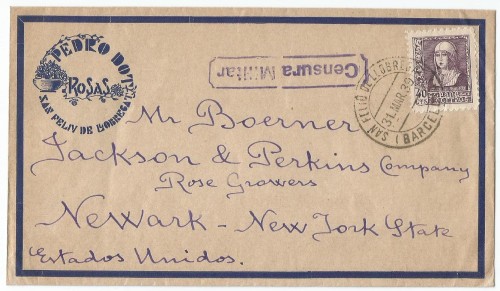 PEDRO DOT
ROSAS
SAN FELIV DE LLOBREGAT
Censura Militar
SAN FELIU DE LLOBREGAT
31.MAR.39
(BARCEL
40
CTS
Mr Boerner
Jackson & Perkins Company
Rose Growers
Newark - New York State
Estados Unidos.